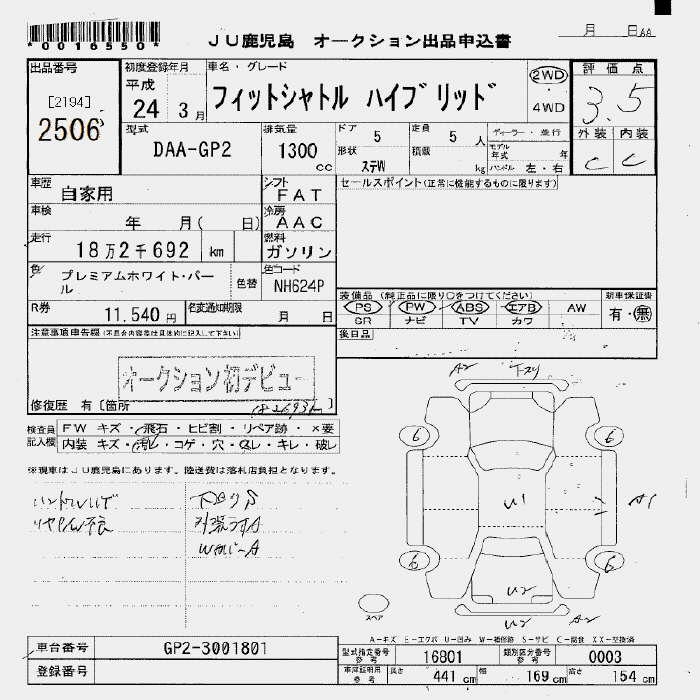 *0016550*
JU鹿児島 オークション出品申込書
月 日
出品番号
[2194]
2506
初度登録年月
平成
24 3月
車名・グレード
フィットシャトル ハイブリッド
2WD
4WD
評価点
3.5
外装 内装
C C
型式
DAA-GP2
排気量
1300
cc
ドア
5
定員
5 人
形状
ステW
積載
kg
ディーラー・並行
モデル年式 年
ハンドル 左・右
車歴
自家用
シフト
FAT
車検
年 月( 日)
冷房
AAC
走行
18万2千692 km
燃料
ガソリン
色
プレミアムホワイト・パール
色替
色コード
NH624P
R券
11,540円
名変通知期限
月 日
セールスポイント(正常に機能するものに限ります)
装備品(純正品に限り○をつけてください)
PS PW ABS エアB AW
SR ナビ TV カワ
新車保証書
有・無
後日品
注意事項申告欄(不具合内容等は具体的に記入して下さい)
オークション初デビュー
修復歴 有[箇所 ]
検査員記入欄
FW キズ・飛石・ヒビ割・リペア跡・×要
内装 キズ・汚レ・コゲ・穴・スレ・キレ・破レ
※現車はJU鹿児島にあります。陸送費は落札店負担となります。
下回りS
A2 下スリ
6 6
U1
A1
6 6
U2
U2 A2
スペア
A-キズ E-エクボ U-凹み W-補修跡 S-サビ C-腐食 XX-交換済
車台番号
GP2-3001801
登録番号
型式指定番号
参考
16801
類別区分番号
参考
0003
車庫証明用
参考
長さ 441 cm
幅 169 cm
高さ 154 cm